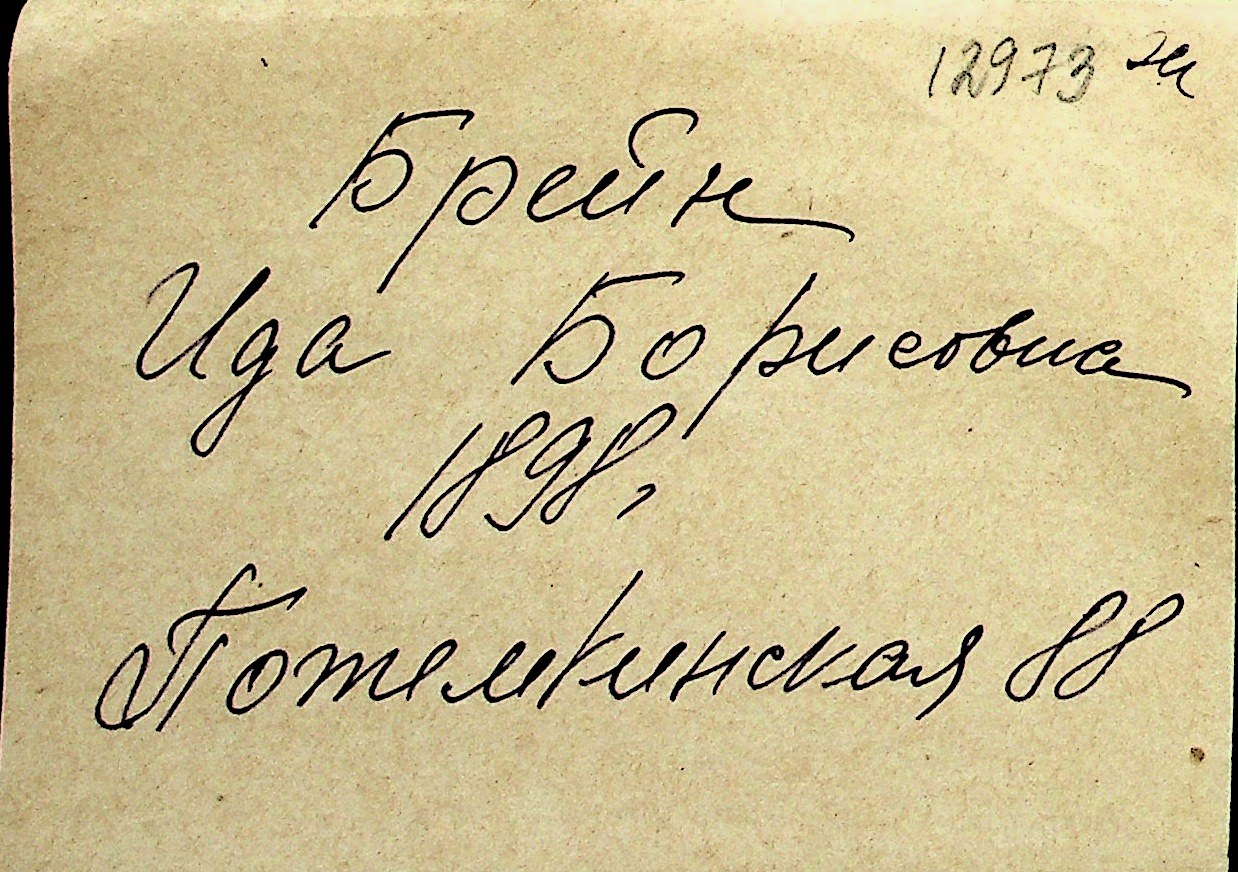 12973 ж
Брейн
Ида Борисовна
1898,
Потемкинская 88